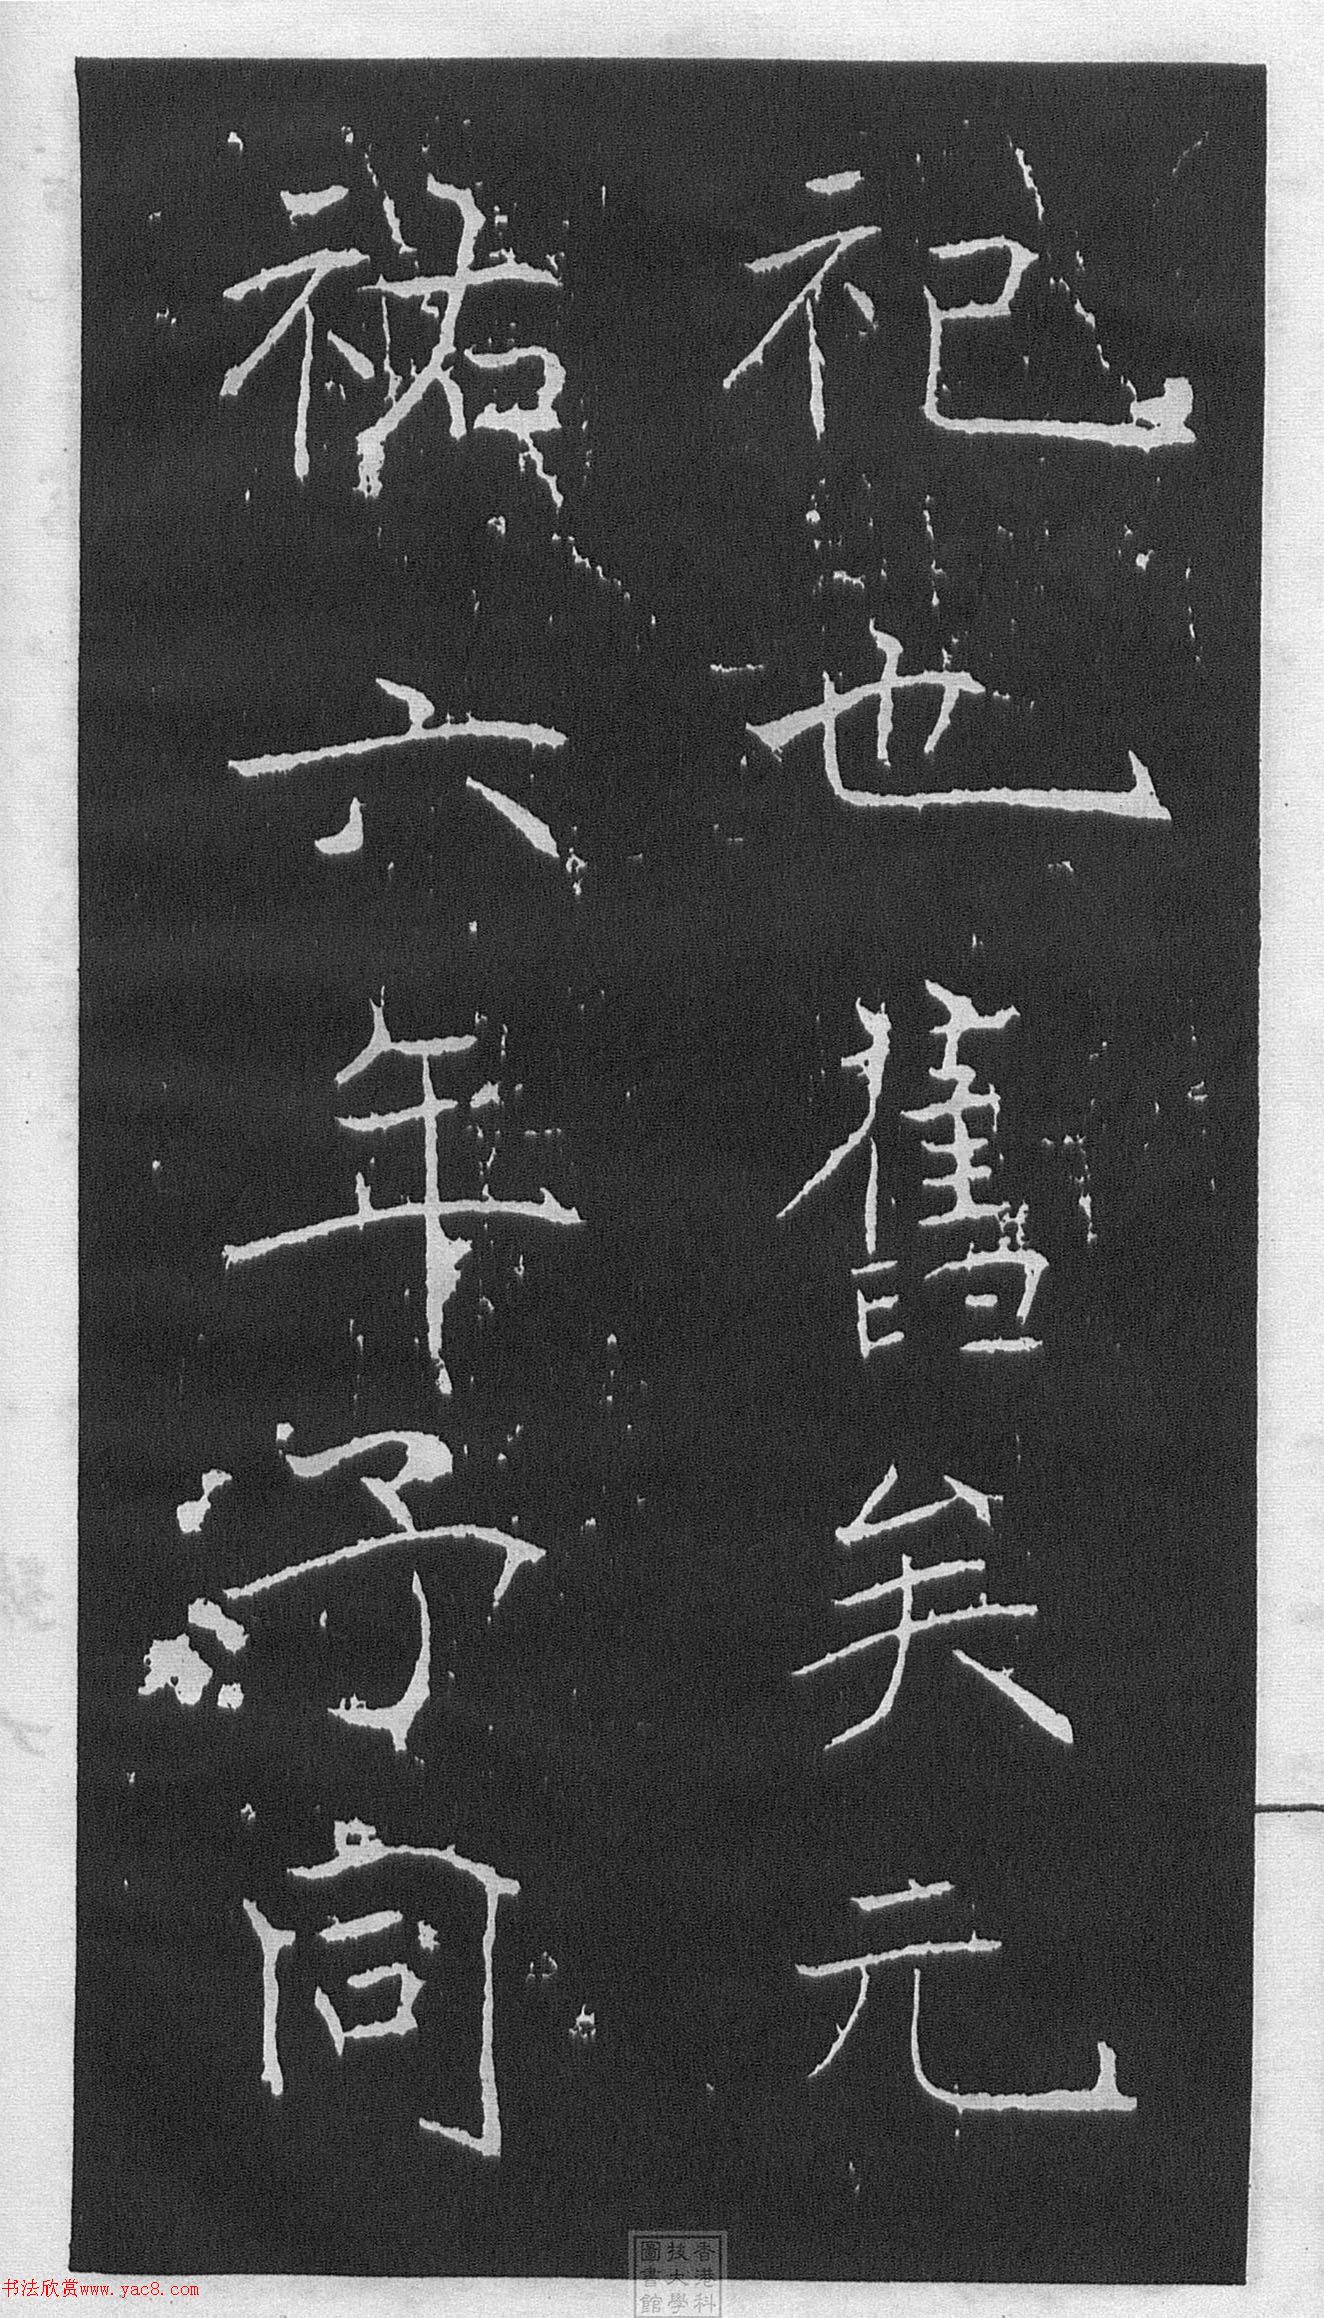 祀也舊矣元
祐六年予同
香港科
技大學
圖書館
书法欣赏www.yac8.com